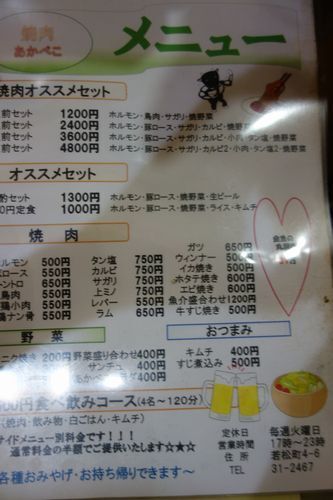 焼肉
あかべこ
メニュー
焼肉オススメセット
前セット 1200円 ホルモン・鳥肉・サガリ・焼野菜
前セット 2400円 ホルモン・豚ロース・サガリ・カルビ・焼野菜
前セット 3600円 ホルモン・豚ロース・サガリ・カルビ・小肉・タン塩・焼野菜
前セット 4800円 ホルモン・豚ロース・サガリ・カルビ2・小肉・タン塩2・焼野菜
オススメセット
酌セット 1300円 ホルモン・豚ロース・焼野菜・生ビール
0円定食 1000円 ホルモン・豚ロース・焼野菜・ライス・キムチ
焼 肉
ホルモン 500円 タン塩 750円 ガツ 650円
ロース 550円 カルビ 750円 ウィンナー 500円
トントロ 650円 サガリ 750円 イカ焼き 500円
鳥肉 550円 上ミノ 750円 ホタテ焼き 600円
鶏小肉 550円 レバー 550円 エビ焼き 600円
鶏ナン骨 550円 ラム 650円 魚介盛合わせ1200円
牛すじ焼き 500円
野 菜
おつまみ
ニク焼き 200円 野菜盛り合わせ 400円 キムチ 400円
サンチュ 400円 すじ煮込み 500円
400円
円食べ飲みコース(4名~120分)
(焼肉・飲み物・白ごはん・キムチ)
イドメニュー別料金です!!!
通常料金の半額でご提供いたします☆☆☆
各種おみやげ・お持ち帰りできます~
定休日 毎週火曜日
営業時間 17時~23時
住所 若松町4-6
TEL 31-2467